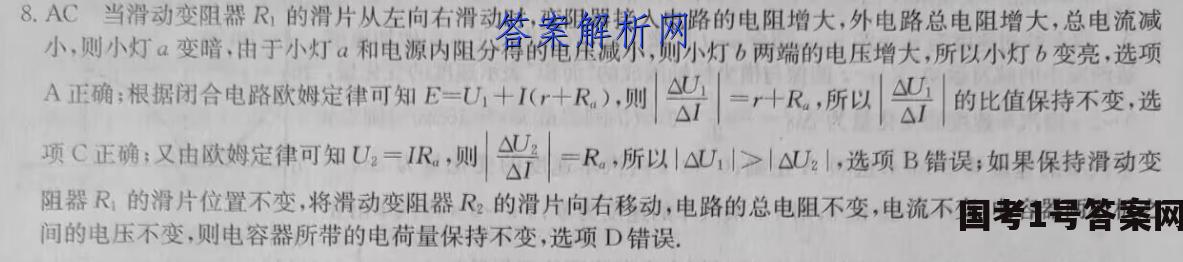 8. AC 当滑动变阻器 R₁ 的滑片从左向右滑动 路的电阻增大,外电路总电阻增大,总电流减
答案解析网
小,则小灯 a 变暗,由于小灯 a 和电源内阻分得的电压减小,则小灯 b 两端的电压增大,所以小灯 b 变亮,选项
A 正确;根据闭合电路欧姆定律可知 E=U₁+I(r+Rₐ),则 |ΔU₁/ΔI| =r+Rₐ,所以 |ΔU₁/ΔI| 的比值保持不变,选
项 C 正确;又由欧姆定律可知 U₂=IRₐ,则 |ΔU₂/ΔI| =Rₐ,所以|ΔU₁|>|ΔU₂|,选项 B 错误;如果保持滑动变
阻器 R₁ 的滑片位置不变,将滑动变阻器 R₂ 的滑片向右移动,电路的总电阻不变,电流不
国考1号答案网
间的电压不变,则电容器所带的电荷量保持不变,选项 D 错误.